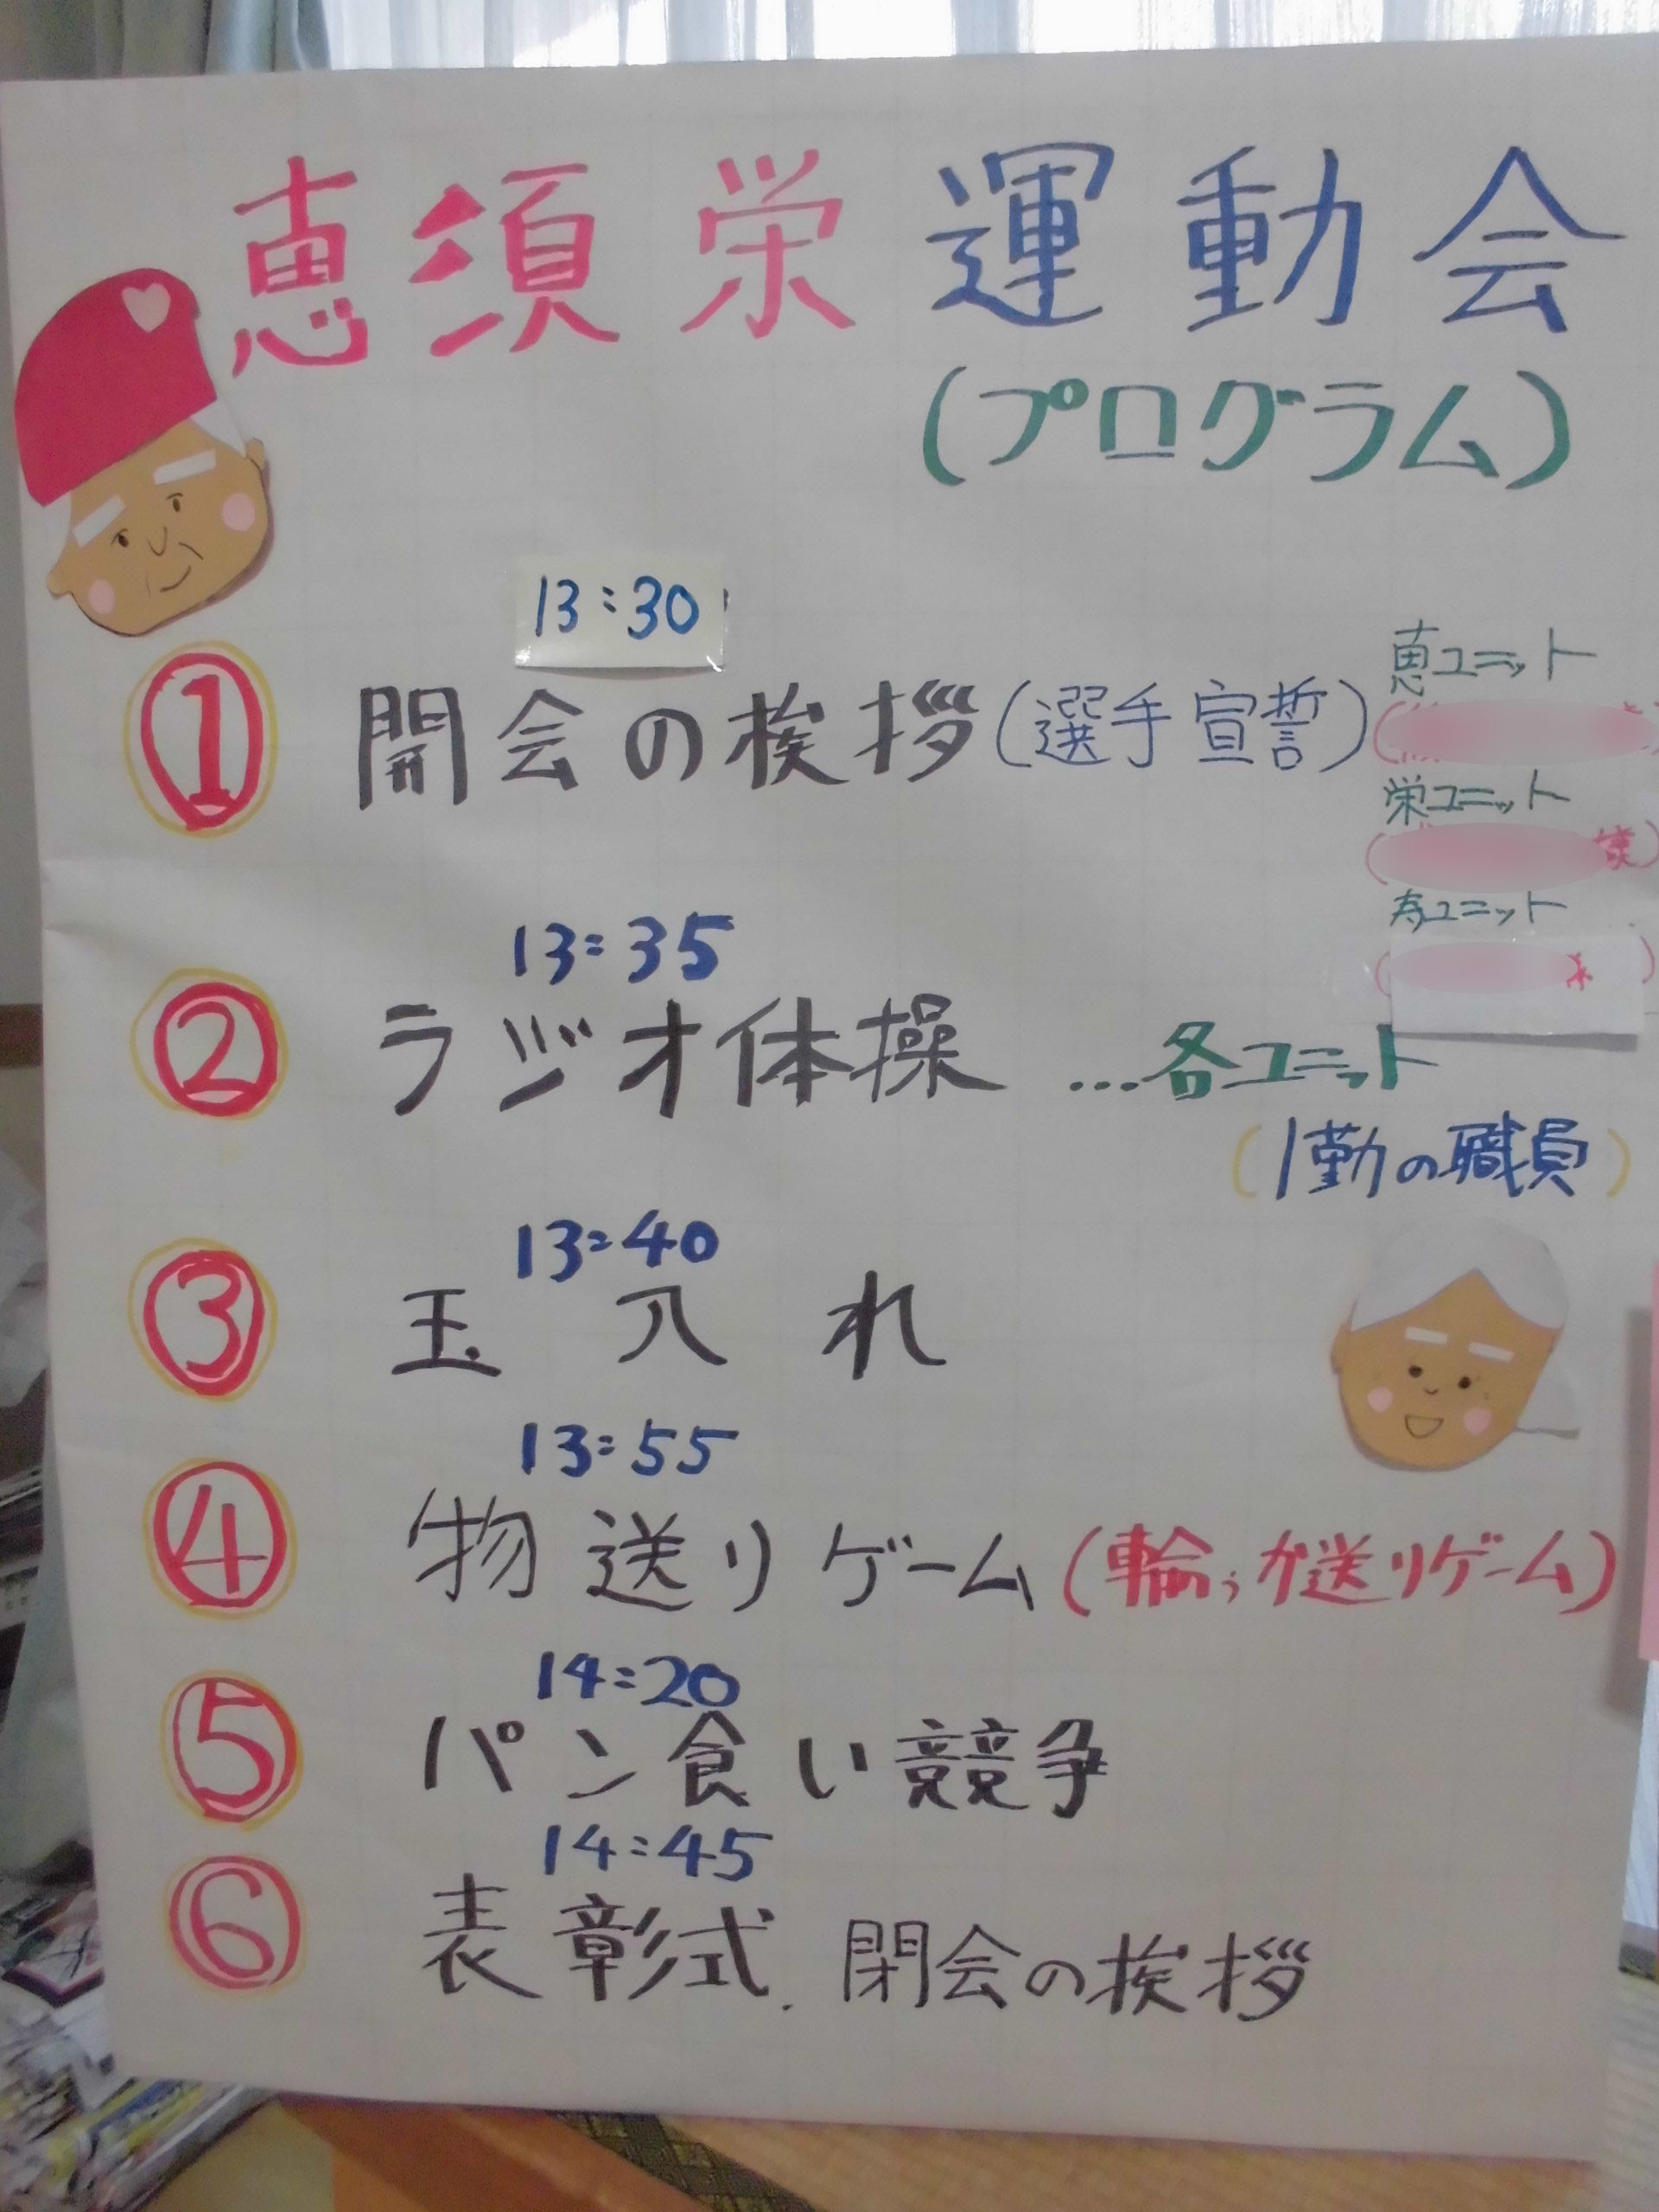 恵須栄運動会
(プログラム)
13:30
① 開会の挨拶(選手宣誓)
恵ユニット
栄ユニット
様)
寿ユニット
13:35
② ラジオ体操 …各ユニット
(1勤の職員)
13:40
③ 玉入れ
13:55
④ 物送りゲーム(輪っか送りゲーム)
14:20
⑤ パン食い競争
14:45
⑥ 表彰式.閉会の挨拶